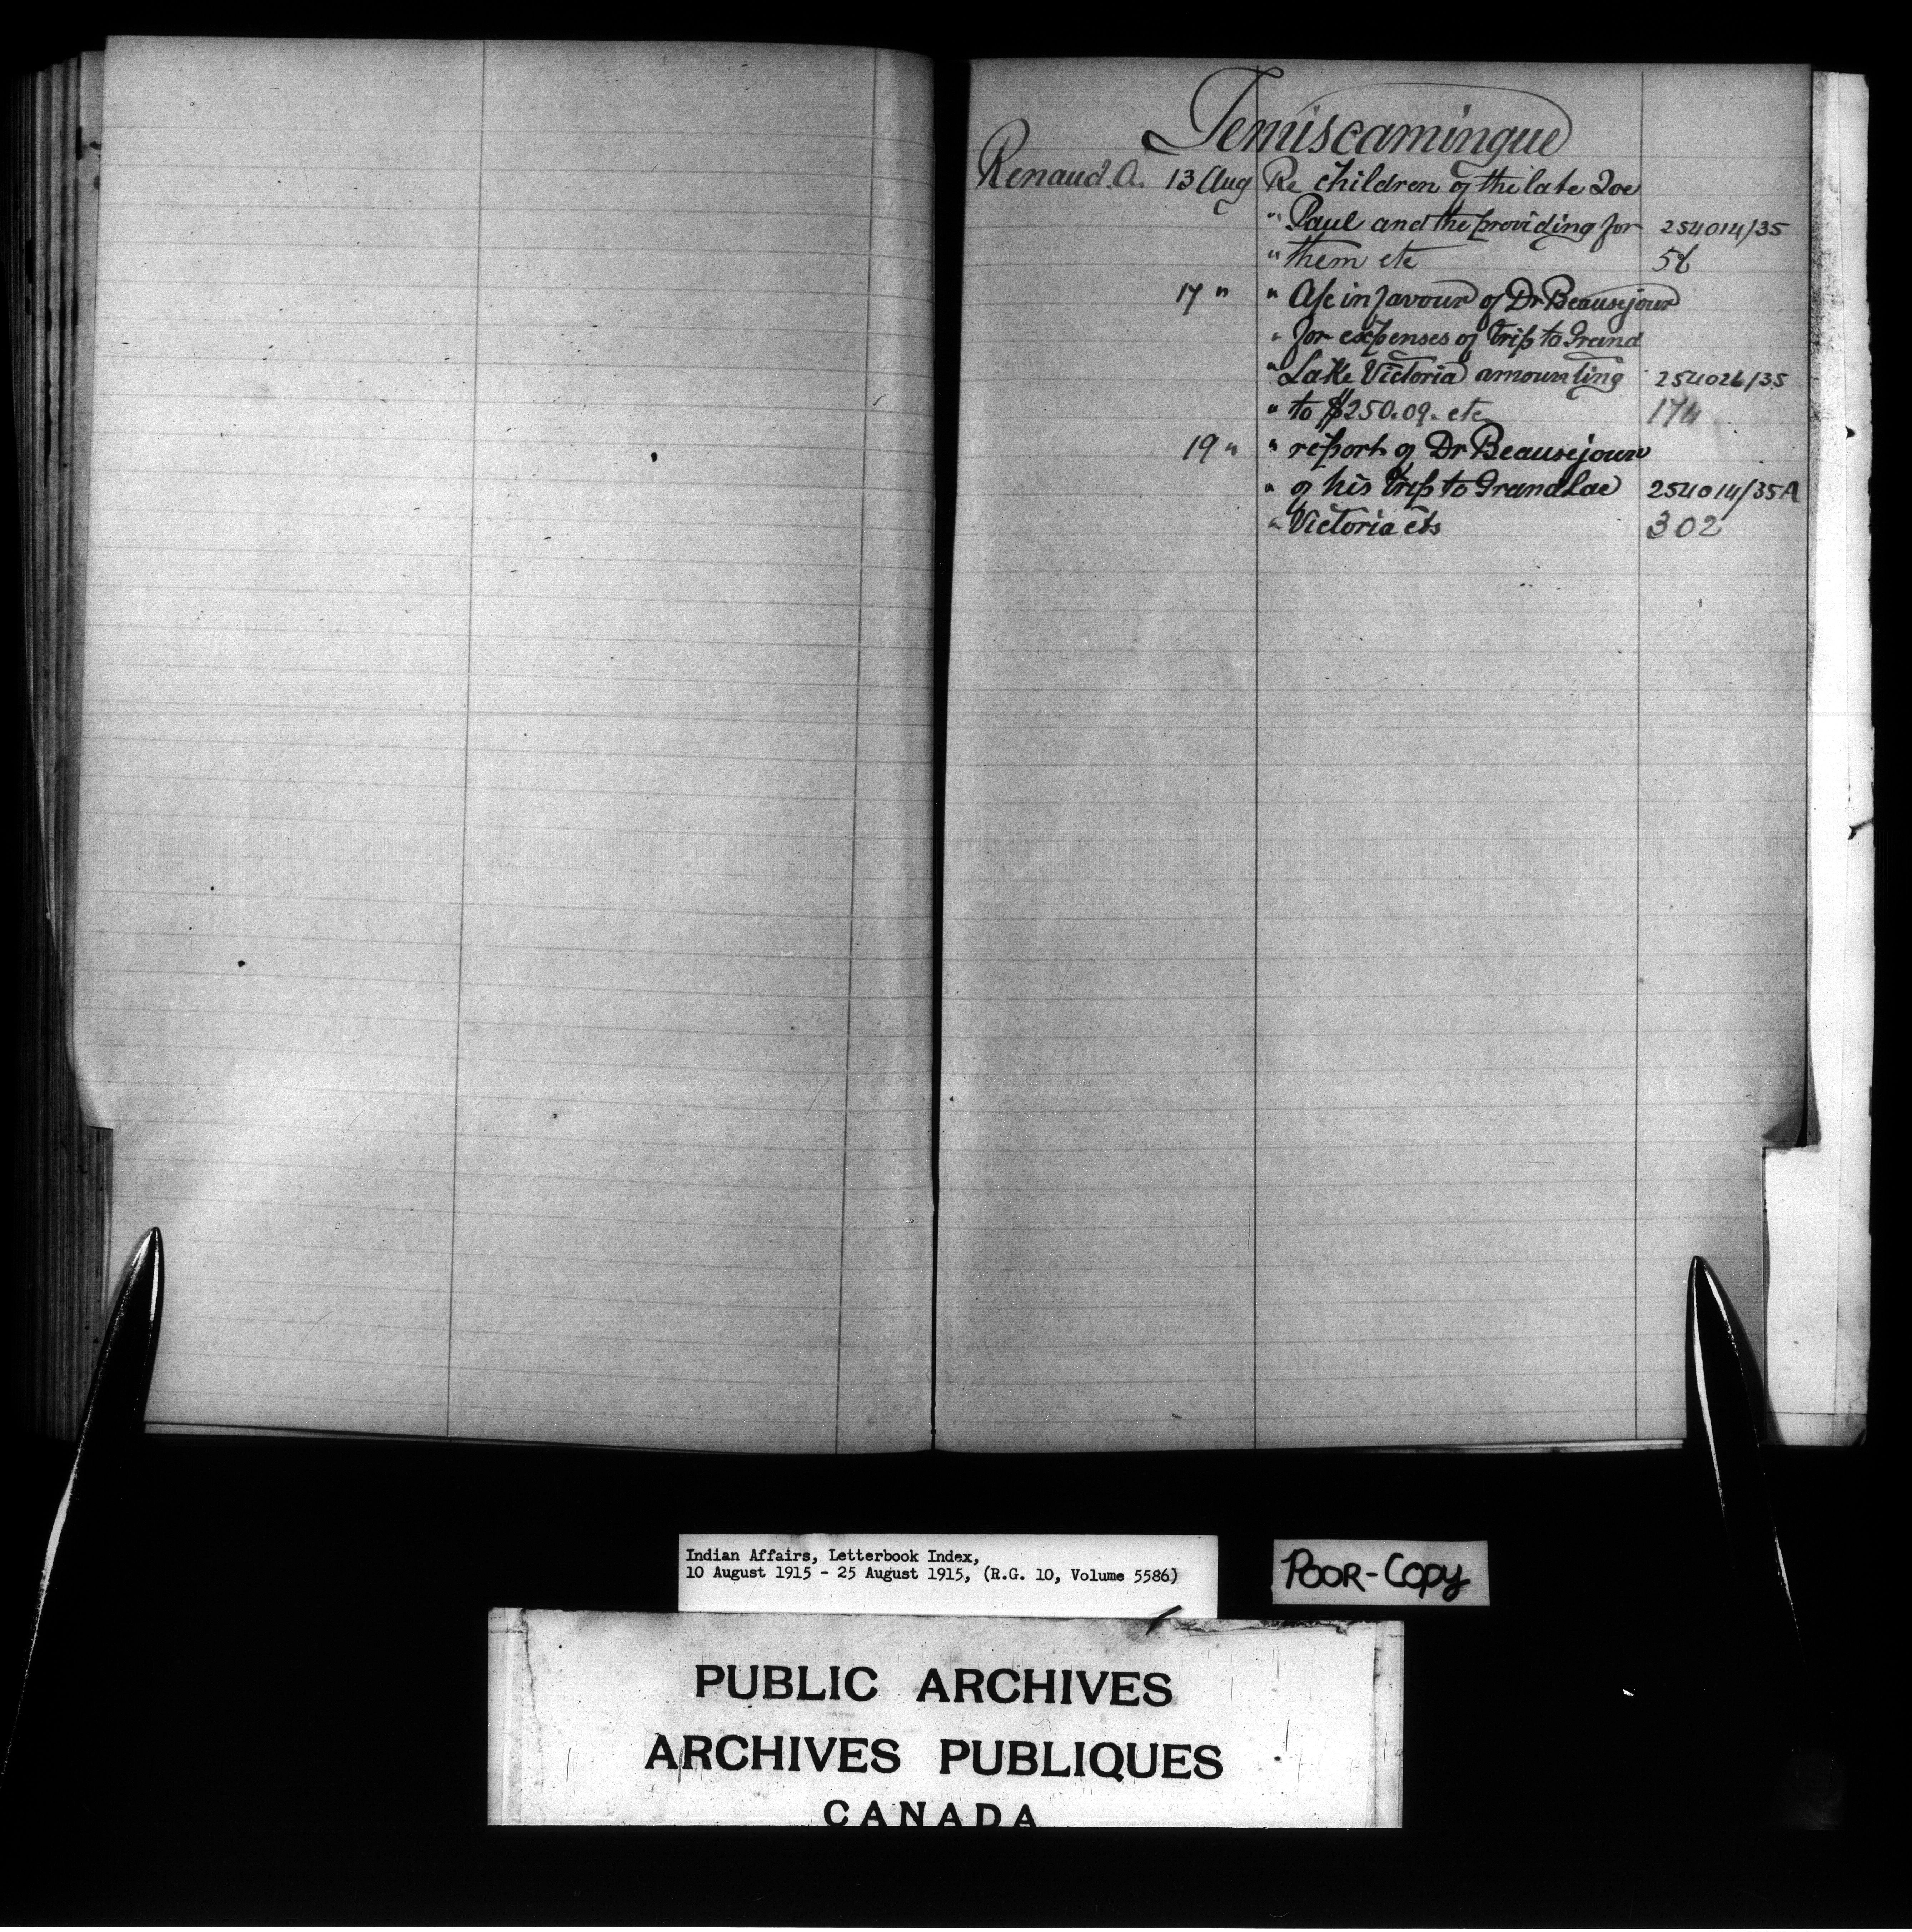 Temiscamingue
Renaud A. 13 Aug Re children of the late Zoe
" Paul and the providing for 254014/35
" them etc 56
17 " " A/c in favour of Dr Beausejour
" for expenses of trip to Grand
" Lake Victoria amounting 254026/35
" to $250.09. etc 174
19 " " report of Dr Beausejour
" of his trip to Grand Lac 254014/35A
" Victoria etc 302
Indian Affairs, Letterbook Index,
10 August 1915 - 25 August 1915, (R.G. 10, Volume 5586)
POOR-COPY
PUBLIC ARCHIVES
ARCHIVES PUBLIQUES
CANADA